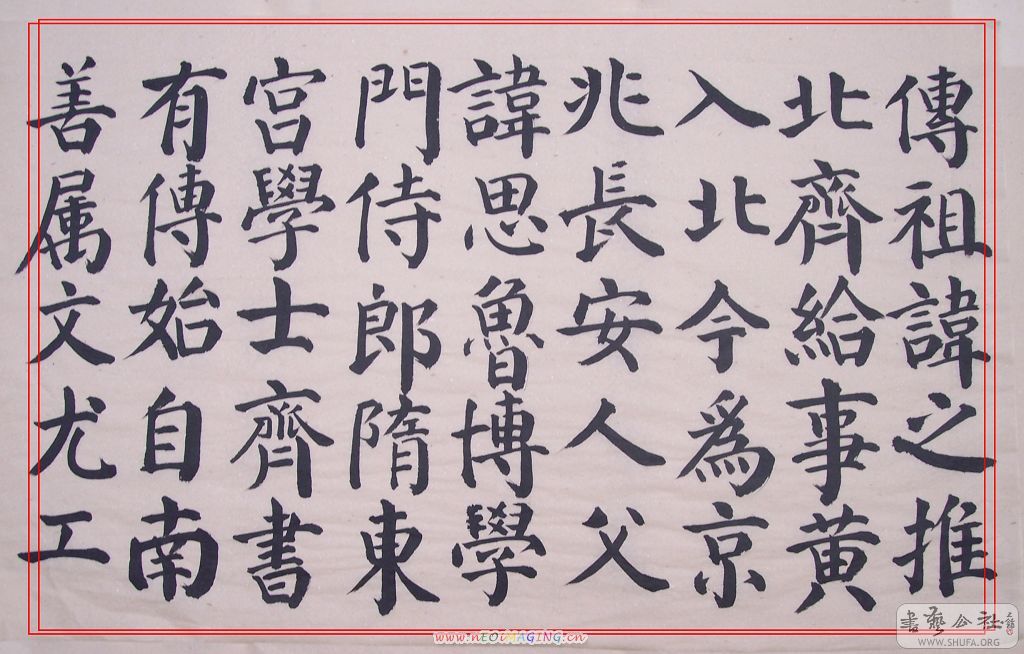 傳祖諱之推
北齊給事黃
入北今為京
兆長安人父
諱思魯博學
門侍郎隋東
宮學士齊書
有傳始自南
善属文尤工
www.nEOiMAGING.cn
書藝公社
WWW.SHUFA.ORG